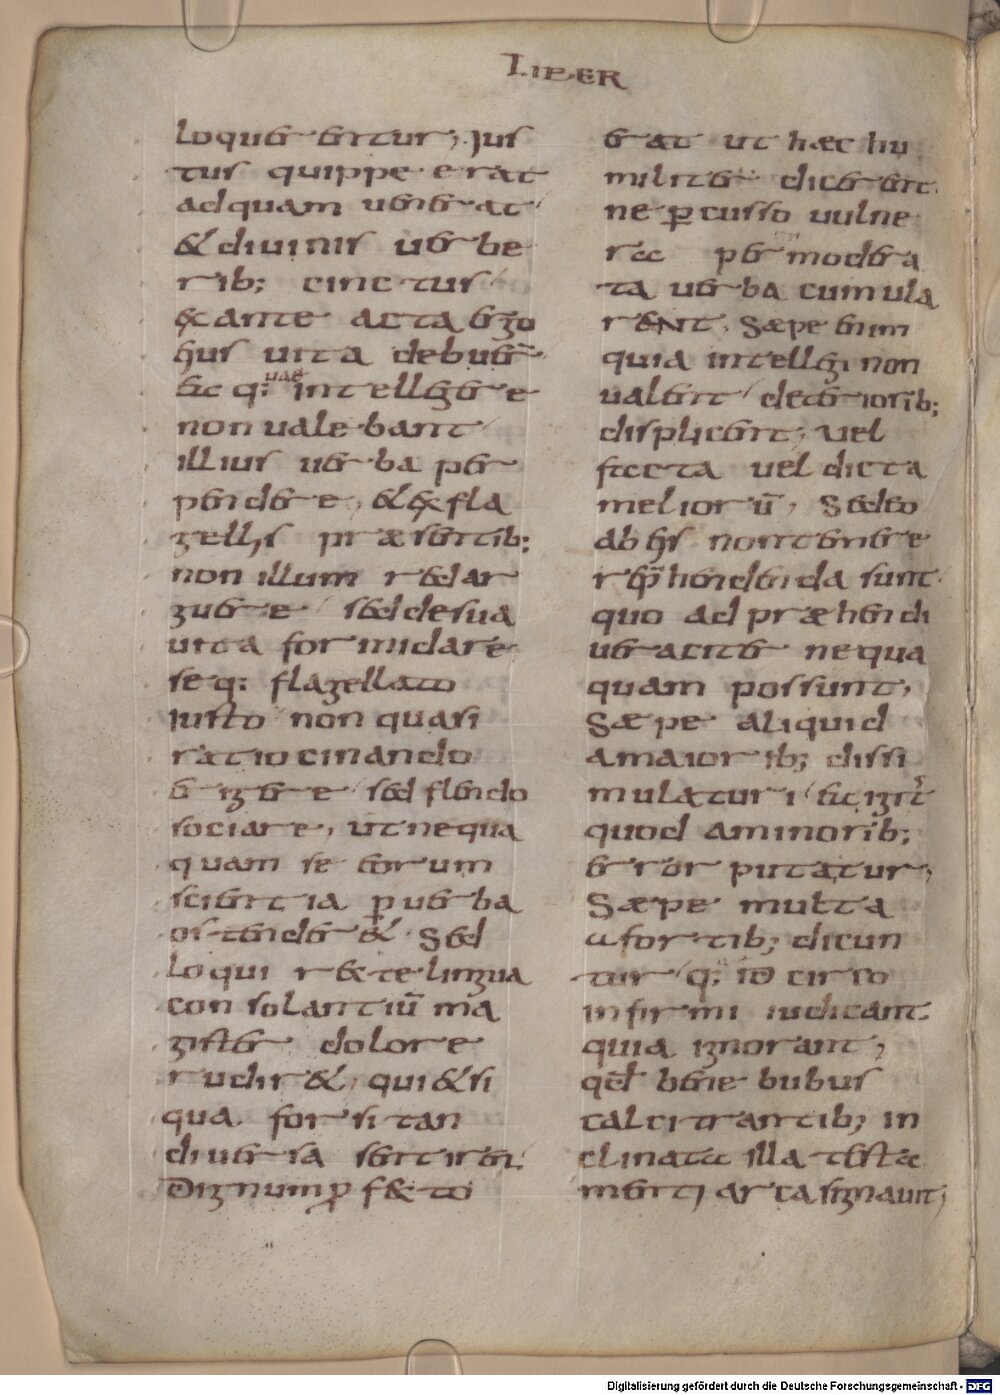 LIBER
loquerentur; Ius
tus quippe erat
ad quam uenerat
& diuinis uerbe
rib; cinctus
ex ante acta ergo
eius uita debuer̄
et q: uae intellegere
non ualebant
illius uerba per
pendere, & ex fla
gellis præsentib;
non illum redar
guere / sed de sua
uita formidare
seq: flagellato
iusto non quasi
ratiocinando
erigere / sed flendo
sociare, ut nequa
quam se eorum
scientia p uerba
ostender&. Sed
loqui recte lingua
consolantiū ma
gister dolore
rudir&, qui & si
qua forsitan
diuersa sentiren
Dignum p fecto
erat ut hæc hu
militer dicerent
ne pcusso uulne
ra per moderа
ta uerba cumula
rent. Sæpe enim
quia intellegi non
ualent / deteriorib;
displicent, uel
facta uel dicta
meliorū, Sed eo
ab eis non temere
rephendenda sunt
quo adpræhendi
ueraciter nequa
quam possunt,
Sæpe aliquid
a maiorib; dissi
mulaturi / et igit̄
quod a minorib;
error putatur,
Sæpe multa
a fortib; dicun
tur / q; idcirco
infirmi iudicant.
quia ignorant;
qd bene bubus
calcitrantib; in
clinata illa testa
menti arca signauit;
Digitalisierung gefördert durch die Deutsche Forschungsgemeinschaft - DFG